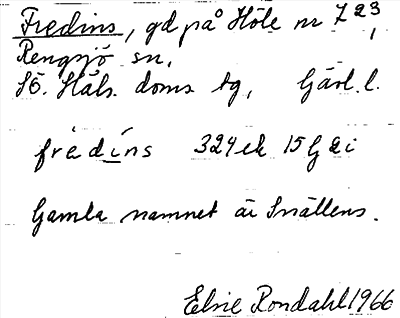 Fredins, gd på Höle nr 7 2 3,
Rengsjö sn,
SÖ. Häls. doms tg, Gävl. l.
fredins 324 ek 15 G e i
Gamla namnet är Snällens.
Elsie Rondahl 1966